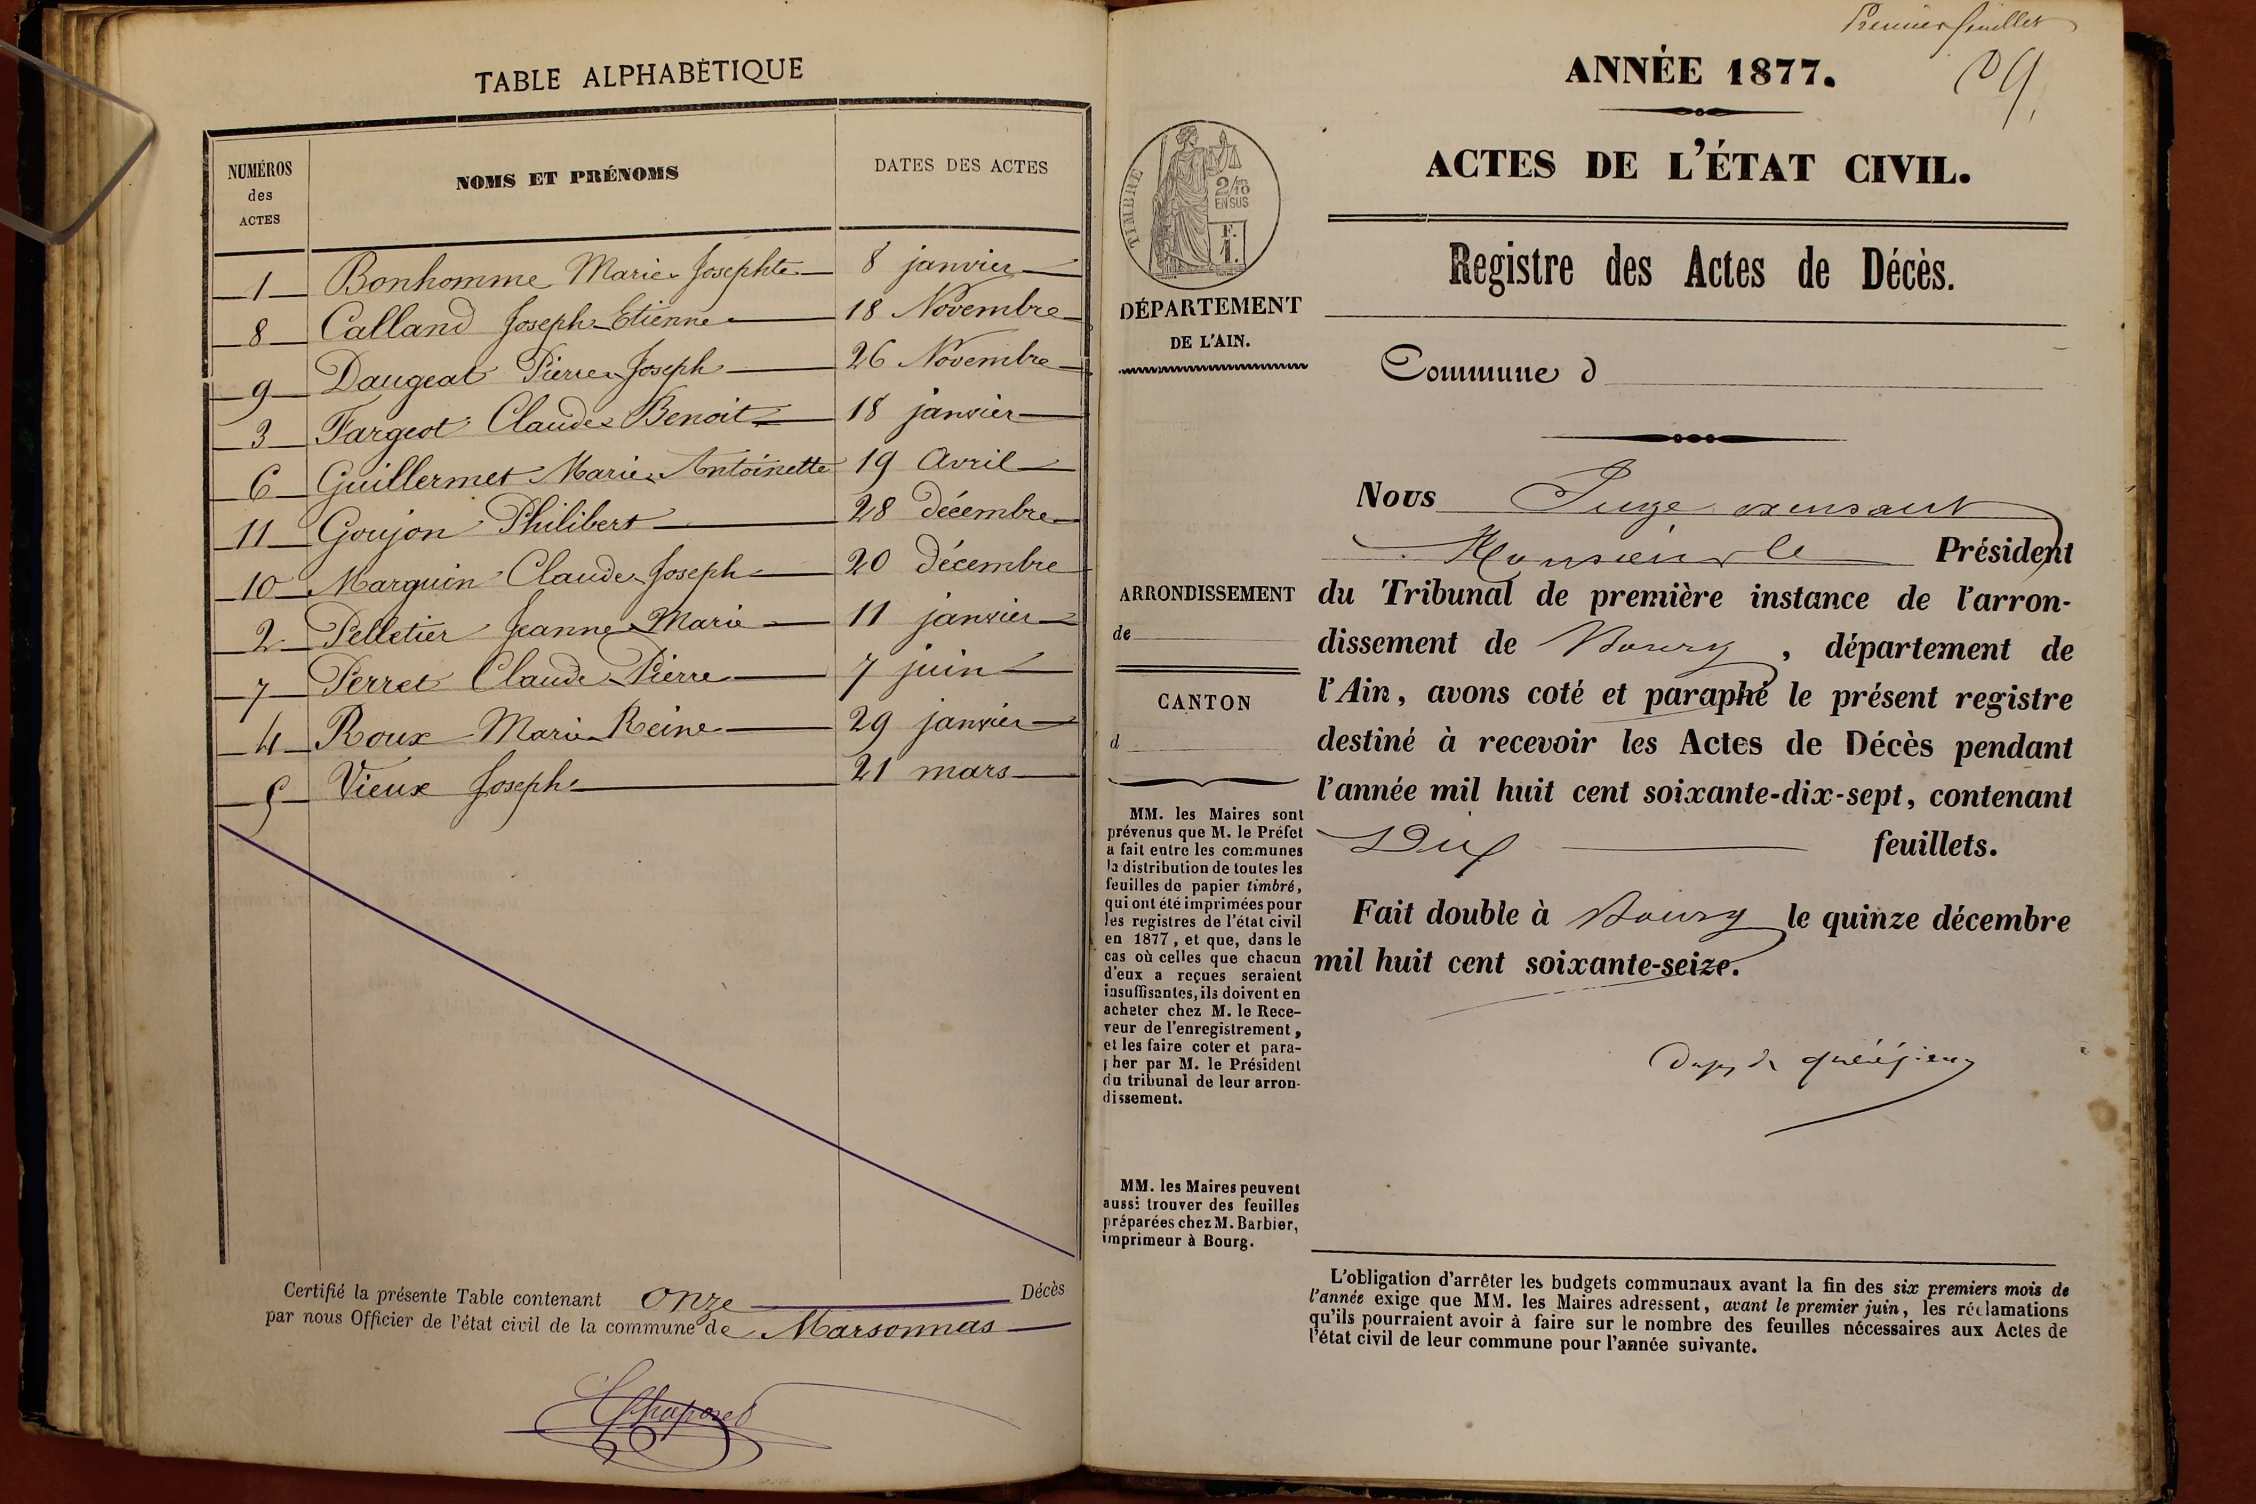 TABLE ALPHABÉTIQUE
NUMÉROS
des
ACTES
NOMS ET PRÉNOMS
DATES DES ACTES
1 Bonhomme Marie Josephte 8 janvier
8 Calland Joseph Etienne 18 Novembre
9 Daugeat Pierre Joseph 26 Novembre
3 Fargeot Claude Benoit 18 janvier
6 Guillermet Marie Antoinette 19 Avril
11 Goujon Philibert 28 décembre
10 Marguin Claude Joseph 20 décembre
2 Pelletier Jeanne Marie 11 janvier
7 Perret Claude Pierre 7 juin
4 Roux Marie Reine 29 janvier
5 Vieux Joseph 21 mars
Certifié la présente Table contenant onze Décès
par nous Officier de l'état civil de la commune de Marsonnas
Premier feuillet
ANNÉE 1877.
ACTES DE L'ÉTAT CIVIL.
Registre des Actes de Décès.
TIMBRE
2/10
EN SUS
F.
1.
DÉPARTEMENT
DE L'AIN.
Commune d
ARRONDISSEMENT
de
CANTON
d
MM. les Maires sont
prévenus que M. le Préfet
a fait entre les communes
la distribution de toutes les
feuilles de papier timbré,
qui ont été imprimées pour
les registres de l'état civil
en 1877, et que, dans le
cas où celles que chacun
d'eux a reçues seraient
insuffisantes, ils doivent en
acheter chez M. le Rece-
veur de l'enregistrement,
et les faire coter et para-
pher par M. le Président
du tribunal de leur arron-
dissement.
MM. les Maires peuvent
aussi trouver des feuilles
préparées chez M. Barbier,
imprimeur à Bourg.
Nous Juge
Monsieur le Président
du Tribunal de première instance de l'arron-
dissement de Bourg, département de
l'Ain, avons coté et paraphé le présent registre
destiné à recevoir les Actes de Décès pendant
l'année mil huit cent soixante-dix-sept, contenant
Dix feuillets.
Fait double à Bourg le quinze décembre
mil huit cent soixante-seize.
L'obligation d'arrêter les budgets communaux avant la fin des six premiers mois de
l'année exige que MM. les Maires adressent, avant le premier juin, les réclamations
qu'ils pourraient avoir à faire sur le nombre des feuilles nécessaires aux Actes de
l'état civil de leur commune pour l'année suivante.